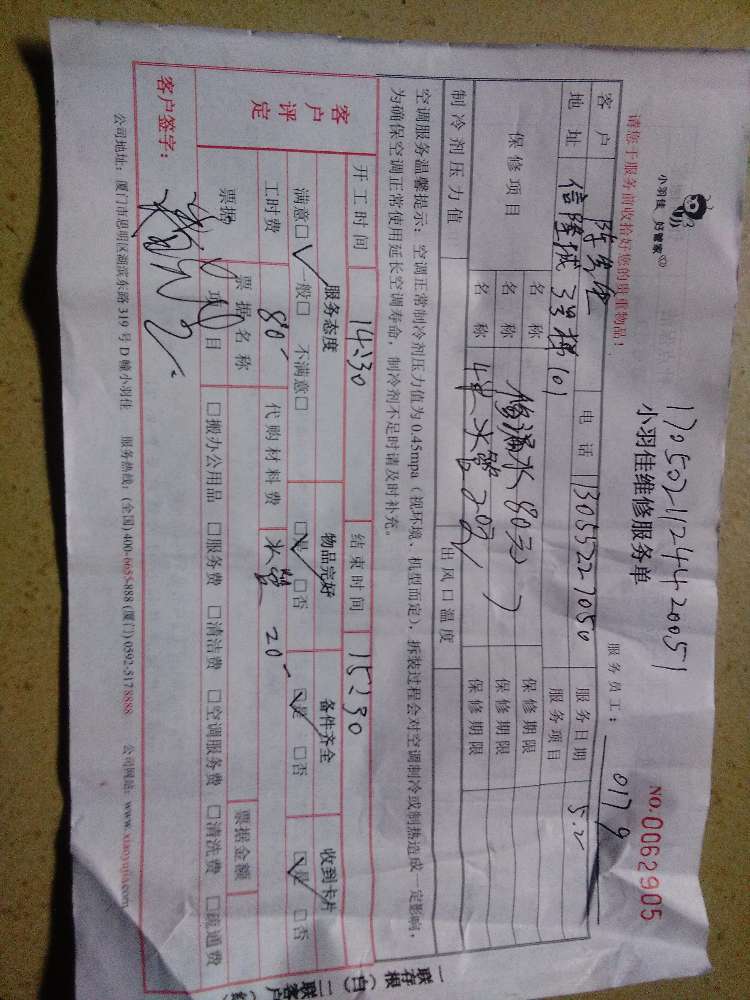 小羽佳 好管家
17050211244420051
小羽佳维修服务单
NO.0062905
请您于服务前收拾好您的贵重物品!
服务员工: 0179
客户 电话 13055227050 服务日期 5.2
地址 信隆城 3号梯101 服务项目
保修项目 名称 保修期限
名称 修漏水 80元 保修期限
名称 4米水管 20元 保修期限
制冷剂压力值 出风口温度
空调服务温馨提示:空调正常制冷剂压力值为0.45mpa(视环境、机型而定),拆装过程会对空调制冷或制热造成一定影响,
为确保空调正常使用延长空调寿命,制冷剂不足时请及时补充。
开工时间 14:30 结束时间 15:30
客户评定 服务态度 物品完好 备件齐全 收到卡片
满意□ 一般□ 不满意□ □是 □否 □是 □否 □是 □否
工时费 80- 代购材料费 水管 20-
票据 票据名称 票据金额
项目 □搬办公用品 □服务费 □清洁费 □空调服务费 □清洗费 □疏通费
客户签字:
公司地址:厦门市思明区湖滨东路319号D幢小羽佳 服务热线:(全国)400-6655-888 (厦门)0592-5178888 公司网站:www.xiaoyujia.com
一联存根(白) 二联客户